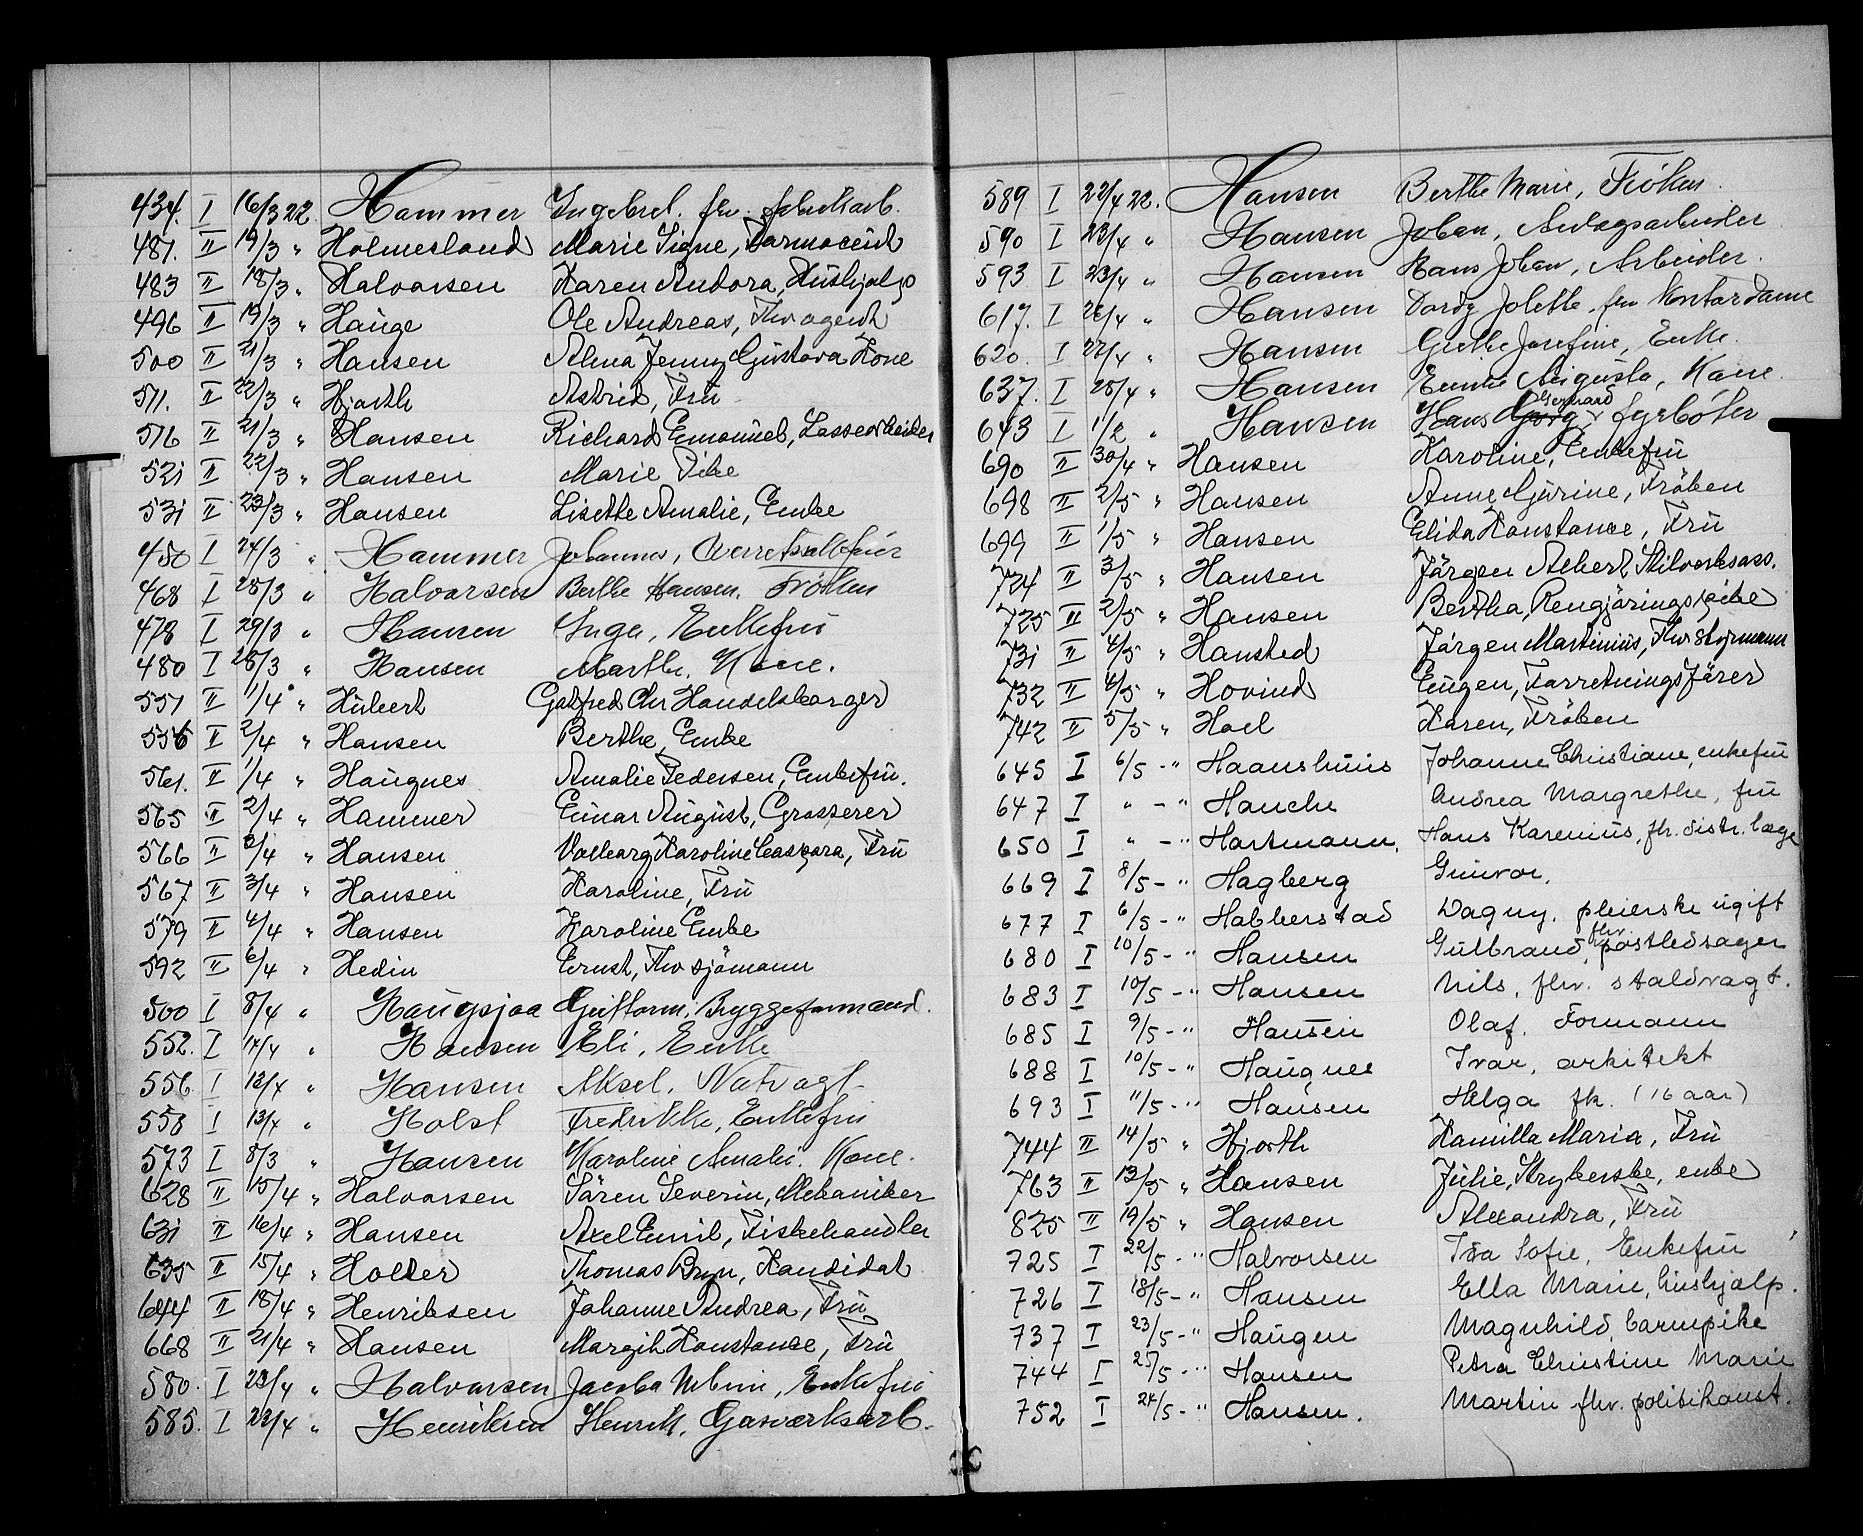 434. I 16/3 22. Hammer Ingebret. fhv. fabrikarb.
481. II 19/3 " Holmesland Marie Signe, Farmaceut
483 II 18/3 " Halvorsen Karen Andora, Hushjelp
496 II 19/3 " Hauge Ole Andreas, Fhv agent
500 II 21/3 " Hansen Alma Jenny Gustava Kone
511. II 22/3 " Hjorth Astrid, Fru
516 II 21/3 " Hansen Richard Emanuel, Lossearbeider
521 II 22/3 " Hansen Marie Pike
531 II 23/3 " Hansen Lisette Amalie, Enke
450 I 24/3 " Hammer Johannes,
468 I 28/3 " Halvorsen Berthe Hansen, Frøken
478 I 29/3 " Hansen Inga, Enkefru
480 I 28/3 " Hansen Marthe, Kone.
551 II 1/4 " Hubert Gotfred Chr Handelsborger
556 II 2/4 " Hansen Berthe, Enke
561. II 1/4 " Haugnes Amalie Pedersen, Enkefru.
565 II 2/4 " Hammer Einar August, Grosserer
566 II 2/4 " Hansen Valborg Karoline Caspara, Fru
567 II 3/4 " Hansen Karoline, Fru
579 II 4/4 " Hansen Karoline Enke
592 II 6/4 " Hedin Ernst, Fhv sjömann
500 I 8/4 " Haugsjaa Guttorm, Bryggeformand.
552. I 14/4 " Hansen Eli, Enke
556 I 12/4 " Hansen Aksel, Natvagt
558 I 13/4 " Holst Fredrikke, Enkefru
573 I 8/3 " Hansen Karoline Amalie. Kone.
628 II 15/4 " Halvorsen Sören Severin, Mekaniker
631 II 16/4 " Hansen Axel Emil, Fiskehandler
635 II 15/4 " Holter Thomas Bryn, Kandidat
644 II 18/4 " Henriksen Johanne Andrea, Fru
668 II 21/4 " Hansen Margit Konstanse, Fru
580. I 23/4 " Halvorsen Jacoba, Enkefru
585. I 22/4 " Henriksen Henrik, Gasverksarb.
589 I 22/4 22. Hansen Berthe Marie, Frøken.
590 I 23/4 " Hansen Johan, Anlegsarbeider
593 I 23/4 " Hansen Hans Johan, Arbeider.
617. I 26/4 " Hansen Dordy Jolette, fhv Kontordame
620. I 27/4 " Hansen Grethe Josefine, Enke.
637. I 28/4 " Hansen Emilie Augusta, Kone.
643 I 1/2 " Hansen Hans Georg Gerhard fyrbøter
690 II 30/4 " Hansen Karoline, Enkefru
698 II 2/5 " Hansen Anne Gurine, Fröken
699 II 1/5 " Hansen Elida Konstanse, Fru
724 II 3/5 " Hansen Jörgen Albert Skilvaktsass.
725 II 2/5 " Hansen Bertha, Rengjöringspike
731 II 4/5 " Hansted Jörgen Martinius, Fhv Styrmann
732 II 4/5 " Hovind Eugen, Forretningsförer
742 II 5/5 " Hoel Karen, Fröken
645 I 6/5 - " Haanshuus Johanne Christiane, enkefru
647 I " - " Hauche Andrea Margrethe, fru
650 I " - " Hartmann. Hans Karenius, fh. distr. læge
669 I 8/5 - " Hagberg Gunvor.
677 I 6/5 - " Habberstad Dagny. pleierske ugift
680 I 10/5 - " Hansen Gulbrand, fhv. postledsager
683 I 10/5 - " Hansen Nils, fhv. staldvagt.
685 I 9/5 - " Hansen Olaf. Formann
688 I 10/5 - " Haugnes Ivar, arkitekt
693 I 11/5 - " Hansen Helga frk. (16 aar)
744 II 14/5 " Hjorth Kamilla Maria, Fru
763 II 13/5 " Hansen Julie, Strykerske, enke
825 II 19/5 " Hansen Alexandra, Fru
725 I 22/5 - " Halvorsen Ida Sofie, Enkefru
726 I 18/5 - " Hansen Ella Marie, hushjælp.
737 I 23/5 - " Haugen Magnhild, barnepike
744 I 25/5 - " Hansen Petra Christine Marie
752 I 24/5 - " Hansen. Martin fhv. politikonst.